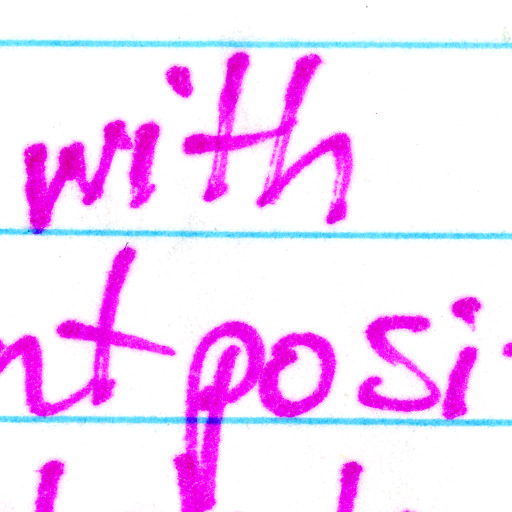 with
nt posi